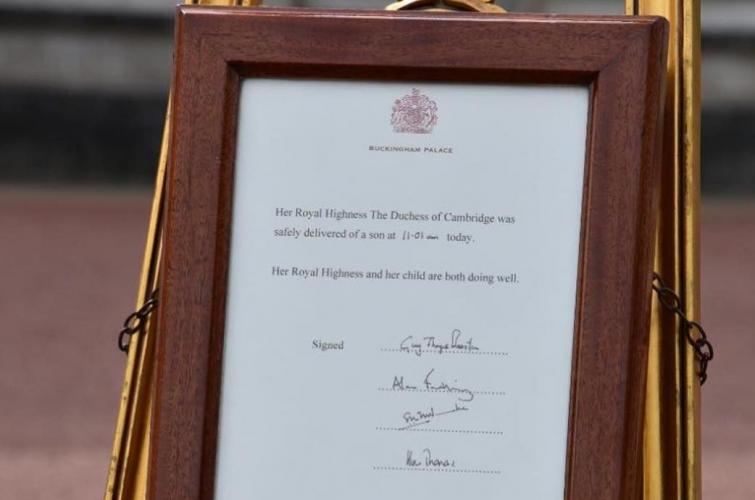 BUCKINGHAM PALACE
Her Royal Highness The Duchess of Cambridge was
safely delivered of a son at 11-01 am today.
Her Royal Highness and her child are both doing well.
Signed Guy Thorpe-Beeston
Alan